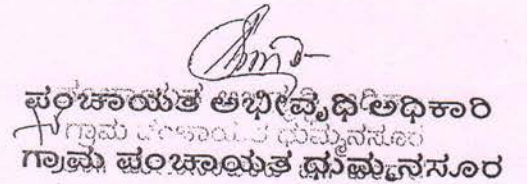 ಪಂಚಾಯತ ಅಭೀವೃಧಿ ಅಧಿಕಾರಿ
ಗ್ರಾಮ ಪಂಚಾಯತ ಧುಮ್ಮನಸೂರ
ಗ್ರಾಮ ಪಂಚಾಯತ ಧುಮ್ಮನಸೂರ